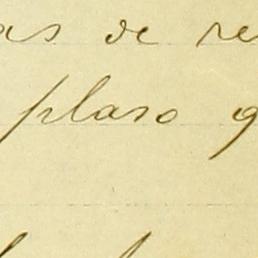 as de re
plaso q